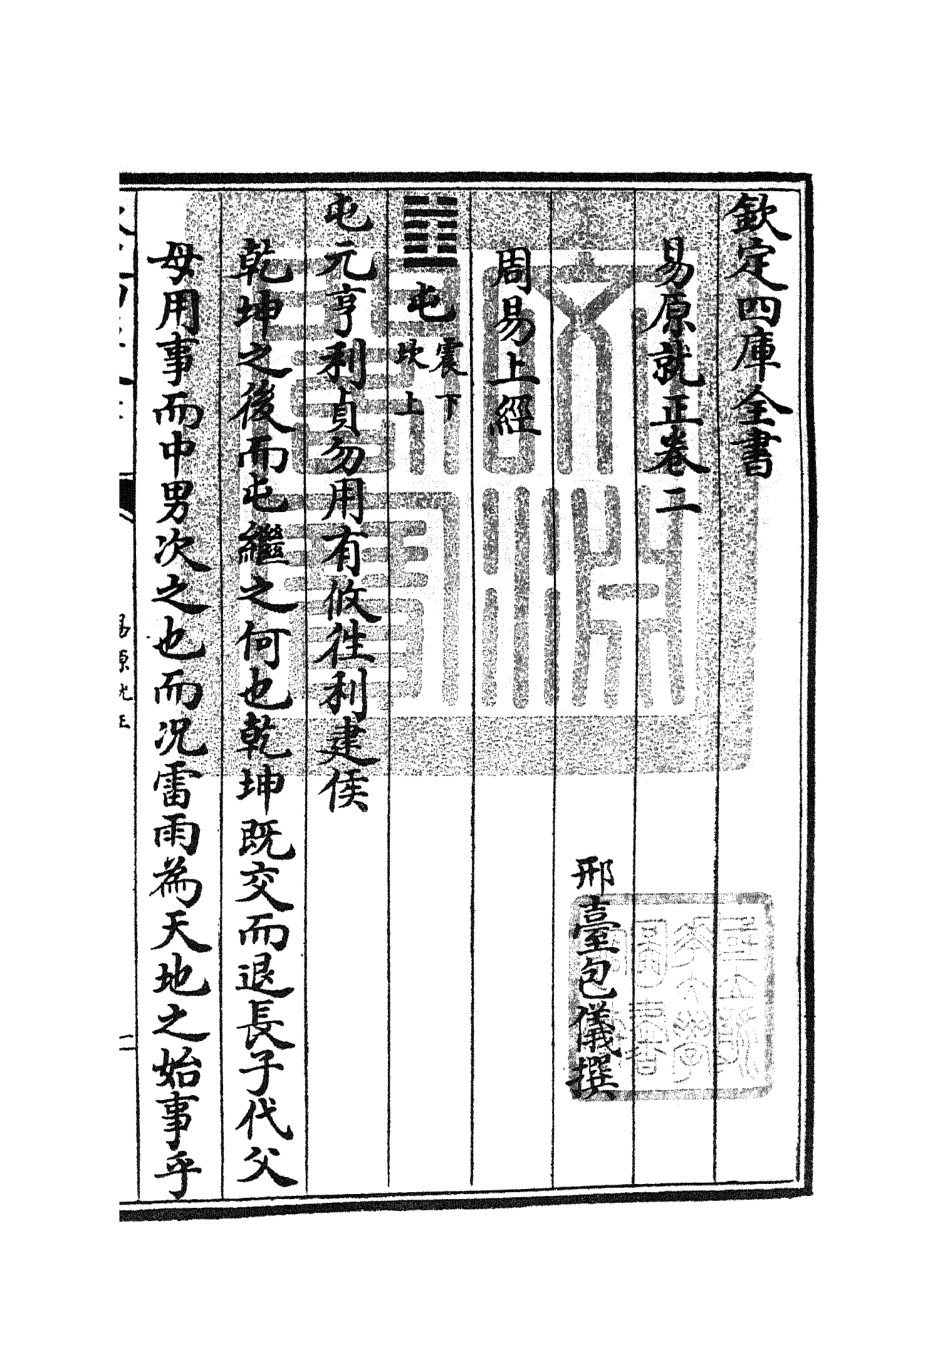 欽定四庫全書
易原就正卷二
邢臺包儀撰
周易上經
䷂屯震下坎上
屯元亨利貞勿用有攸往利建侯
乾坤之後而屯繼之何也乾坤既交而退長子代父
母用事而中男次之也而况雷雨為天地之始事乎
易原就正